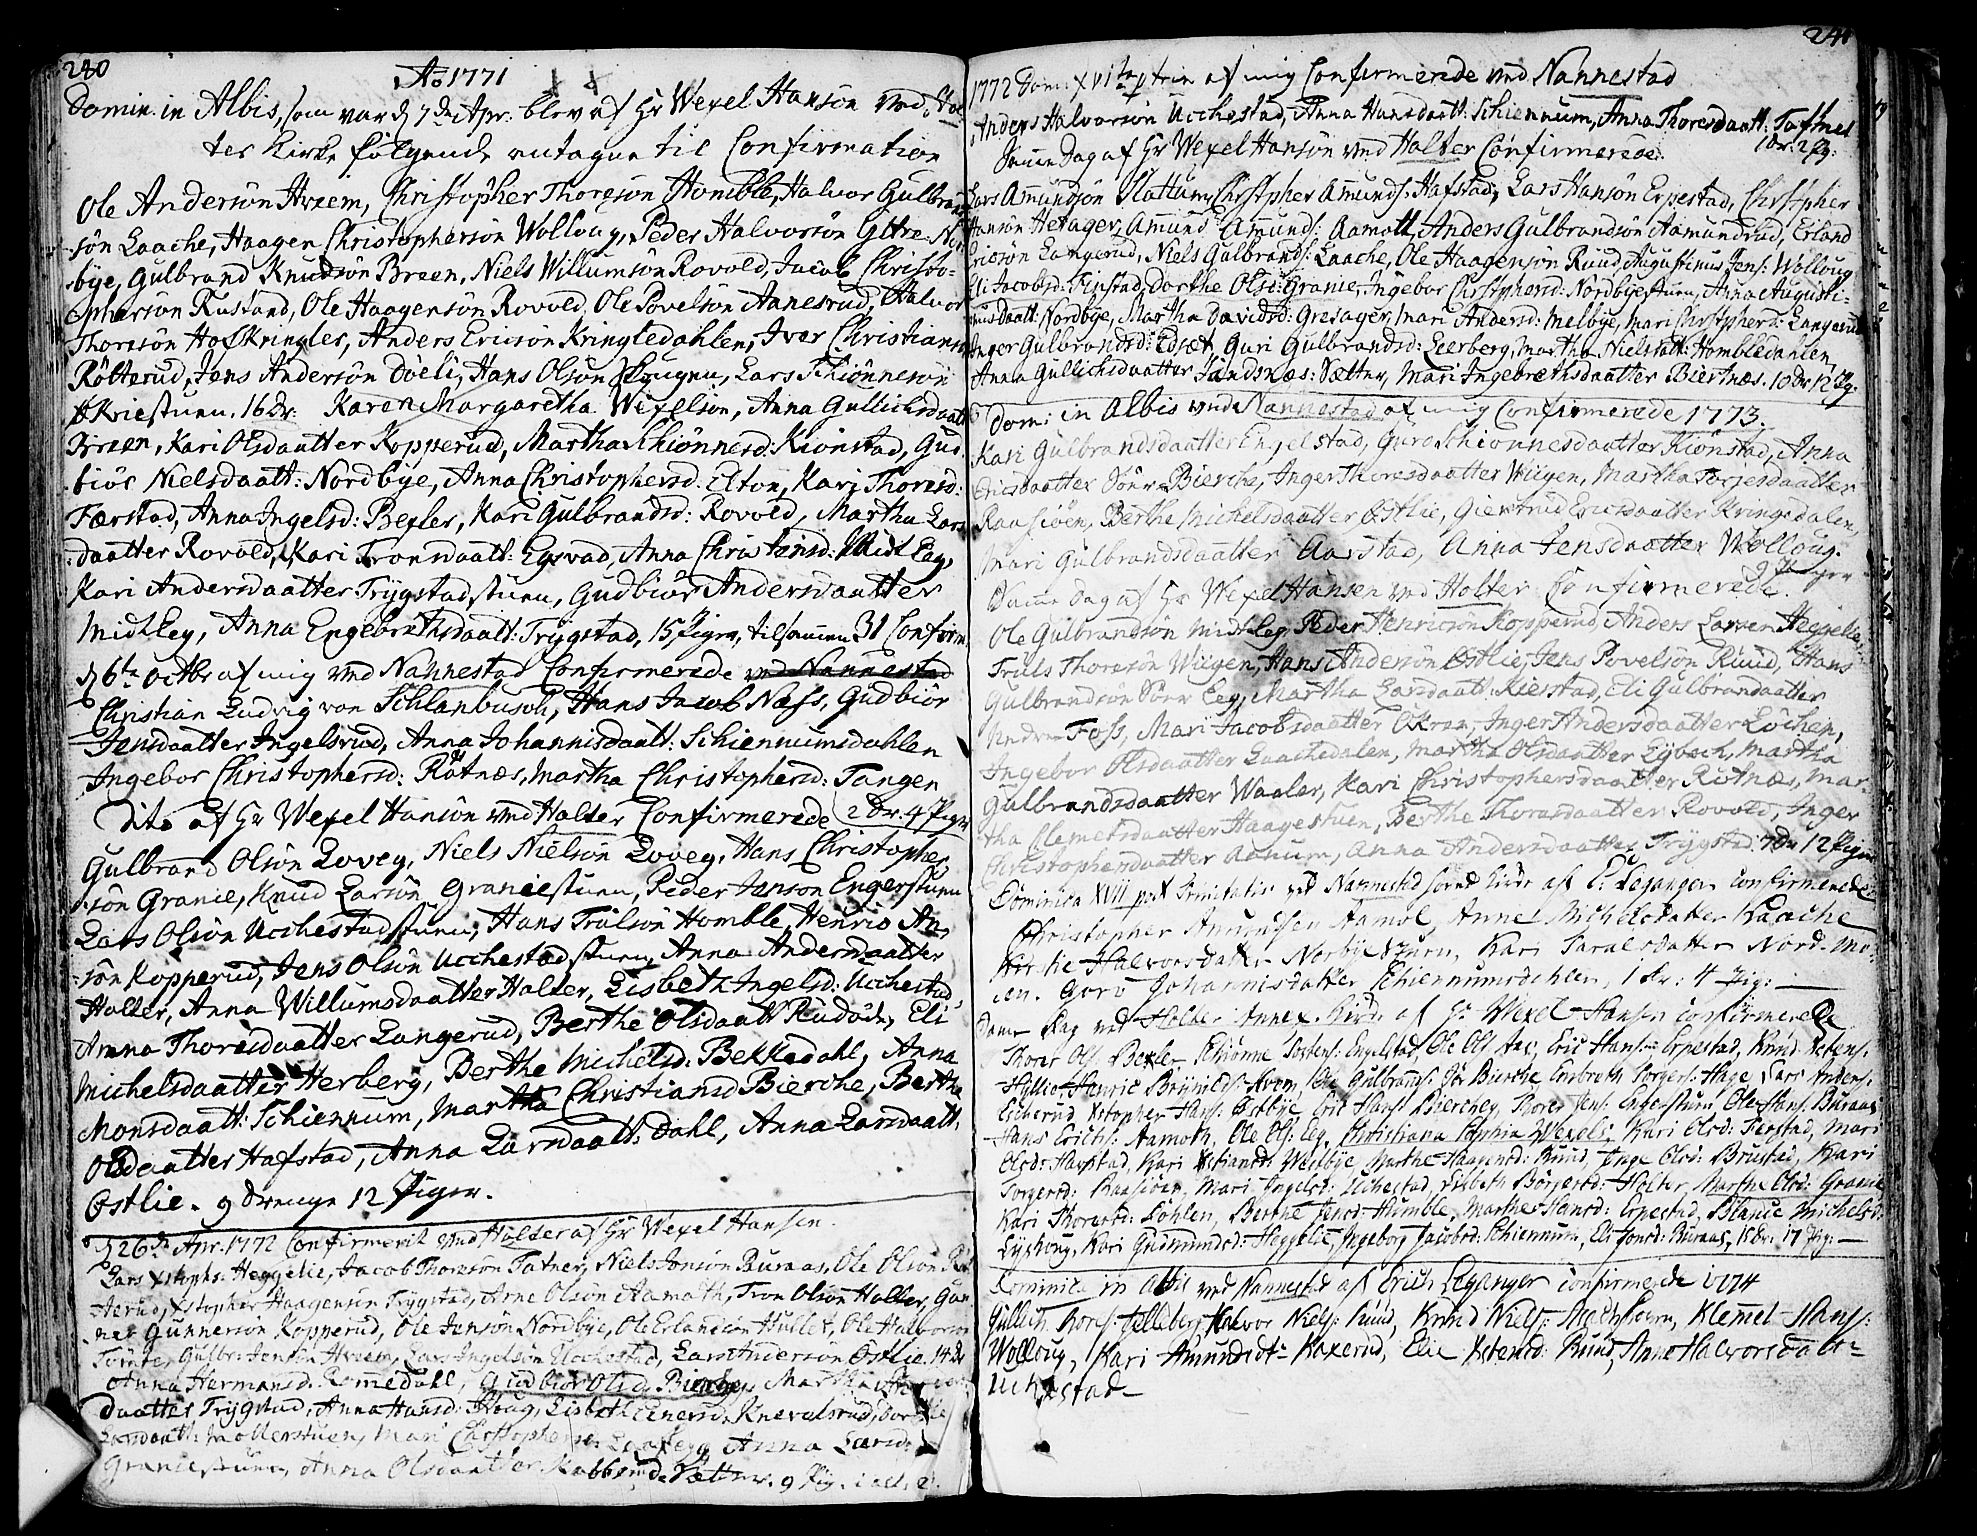 240
Ao 1771
Domin. in Albis, som var d 7de Apr. blev af Hr Wexel Hansön ved Hol-
ter Kirke følgende antagne til Confirmation
Ole Andersön Hveem, Christopher Thoresön Homble, Halvor Gulbrand-
sön Laache, Haagen Christophersön Wolloug, Peder Halvorsön Nor-
bye, Gulbrand Knudsön Breen, Niels Willumsön Rovold, Jacob Christo-
phersön Rustand, Ole Haagensön Rovold, Ole Povelsön Aanesrud, Halvor
Thoresön Hofkringler, Anders Ericsön Kringledahlen, Iver Christians
Rötterud, Jens Andersön Döeli, Hans Olsön Hougen, Lars Schiönnesön
Kriestuen. 16 Dr: Karen Margaretha Wexelsen, Anna Gullichsdaatt
Breen, Kari Olsdaatter Kopperud, Martha Schiönnesd: Kiönstad, Gud-
biör Nielsdaatt: Nordbye, Anna Christophersd: Elton, Kari Thoresd:
Færstad, Anna Ingelsd: Bexler, Kari Gulbrandsd: Rovold, Martha Lars
daatter Rovold, Kari Tronsdaatt: Egsvad, Anna Christiansd: Midt Eeg,
Kari Andersdaatter Trygstadstuen, Gudbiör Andersdaatter
Midt Eeg, Anna Engebrethsdaatt: Trygstad, 15 Piger, tilsammen 31 Confirm
d 6te Octbr af mig ved Nannestad Confirmerede ved Nannestad
Christian Ludvig von Schlanbusch, Hans Jacob Næss, Gudbiör
Jensdaatter Ingelsrud, Anna Johannisdaatt: Schiennumsdahlen
Ingebor Christophersd: Rötnæs, Martha Christophersd: Tangen
Dito af Hr Wexel Hansön ved Holter Confirmerede 2 Dr. 4 Piger
Gulbrand Olsön Lovey, Niels Nielsön Lovey, Hans Christopher
sön Granie, Knud Larsön Graniestuen, Peder Jensön Engerstuen
Lars Olsön Ucchestadstuen, Hans Trulsön Homble, Henric An-
sön Kopperud, Jens Olsön Ucchestadstuen, Anna Andersdaatter
Holter, Anna Willumsdaatter Holter, Lisbeth Ingelsd: Ucchestad,
Anna Thoresdaatter Langerud, Berthe Olsdaatt Rudöde, Eli
Michelsdaatter Herberg, Berthe Michelsd. Bekkedahl, Anna
Monsdaatt: Schiennum, Martha Christiansd Bierche, Berthe
Olsdaatter Hafstad, Anna Larsdaatt: Dahl, Anna Larsdaatt.
Østlie. 9 Drenge 12 Piger.
d 26de Apr. 1772 Confirmerit ved Holter af Hr Wexel Hansen.
Lars Xstophs: Heggelie, Jacob Thoresön Tatner, Niels Jensön Buraas, Ole Olsön
Aerud, Xstopher Haagensön Trygstad, Arne Olsön Aamoth, Tron Olsön Holter, Gun
ner Gunnersön Kopperud, Ole Jensön Nordbye, Ole Erlandsön Hullet, Ole Halvorsön
Gulbr: Jensön Hveem, Lars Ingelsön Ucchestad, Lars Andersön Østlie. 14 Dr
Anna Hermansd. Romedahl, Gudbiör Olsd. Bierchey, Martha
daatter Trygstad, Anna Hansd: Houg, Lisbeth Einersd. Knevelsrud, Dorthe
Larsdaatt: Mollerstuen, Mari Christophersd: Laaxegg Anna Larsd:
Graniestuen, Anna Olsdaatter Kabberud Sætter. 9 Pig.
241
1772 Dom: XVI ta p trin af mig Confirmerede ved Nannestad
Anders Halvorsön Ucchestad, Anna Hansdaatt: Schiennum, Anna Thoresdaatt: Tatner
1 Dr. 2 Pg:
Samme Dag af Hr Wexel Hansön ved Holter Confirmerede.
Lars Amundsön Slattum, Christpher Amunds: Hafstad, Lars Hansön Erpestad, Christpher
Hansön Hexager, Amund Amunds: Aamott, Anders Gulbrandsön Aamundrud, Erland
Ericsön Langerud, Niels Gulbrands: Laache, Ole Haagensön Ruud, Augustinus Jens: Wolloug
Eli Jacobsd: Finstad, Dorthe Olsd: Granie, Ingebor Christphersd: Nordbyestuen, Anna Augusti-
nusdaatt: Nordbye, Martha Davidsd: Gresager, Mari Andersd: Melbye, Mari Christphersd: Langerud
Inger Gulbrandsd: Edset, Guri Gulbrandsd: Leerberg, Martha Nielsdatt: Hombledahlen,
Anna Gullichsdaatter Sandsnæs: Sætter, Mari Ingebrethsdaatter Biertnæs. 10 Dr 12 Pg:
Dom: in Albis ved Nannestad af mig Confirmerede 1773.
Kari Gulbrandsdaatter Engelstad, Guro Schiönnesdaatter Kiönstad, Anna
Ericsdaatter Sönr Bierche, Inger Thoresdaatter Wiigen, Martha Torjesdaatter
Raasiöen, Berthe Michelsdaatter Østlie, Giertrud Ericsdaatter Kringedalen,
Mari Gulbrandsdaatter Aarstad, Anna Jensdaatter Wolloug.
9 Piger
Samme Dag af Hr Wexel Hansen ved Holter Confirmerede.
Ole Gulbrandsön Midt Eeg, Peder Henricsön Kopperud, Anders Larsen Heggelie,
Truls Thoresön Wiigen, Hans Andersön Østlie, Jens Povelsön Ruud, Hans
Gulbrandsön Sönr Eeg, Martha Larsdaatt: Kierstad, Eli Gulbrandaatter
Nedre Foss, Mari Jacobsdaatter Økren, Inger Andersdaatter Löchen,
Ingebor Olsdaatter Laachedalen, Martha Olsdaatter Egbech, Martha
Gulbrandsdaatter Waaler, Kari Christophersdaatter Ritnæs, Mar-
tha Clemetsdaatter Haagestuen, Berthe Thorasdaatter Rovold, Inger
Christophersdaatter Aanum, Anna Andersdaatter Trygstad. 7 Dr 12 Piger
Dominica XVII post Trinitatis ved Nannestad sogne Kirke af E. Leganger confirmerede
Christopher Amundsen Aamot, Anne Michelsdatter Kaache
Halvorsdatter Norbyestuen, Kari Saralsdatter Nord-Mo-
en. Goro Johannisdatter Schiennumsdahlen, 1 dr: 4 Pig:
Samme Dag ved Holter Annex Kirke af Hr Wexel Hansen confirmerede
Thorer Ols: Bexle, Schiönne Tostens: Engelstad, Ole Ols: Aas, Eric Hans: Erpestad, Knud
Hyllie, Henric Brynilds: Hvem, Ole Gulbrans: Sör Bierche, Enbreth Torgers: Hage, Lars Anders:
Eicherud, Xstopher Hans: Østbye, Eric Hans: Bierchey, Thorer Jens: Engerstuen, Ole Hans: Buraas
Hans Erichs: Aamoth, Ole Ols: Eeg, Christiana Sophia Wexels, Kari Olsd: Færstad, Mari
Olsd: Harstad, Kari Xstiansd: Westbye, Marthe Haagensd: Ruud, Inge Olsd: Brustad, Kari
Torgersd: Raasiöen, Mari Ingelsd: Uchestad, Lisbeth Börgersd: Holter, Marthe Olsd: Granie
Kari Thoresd: Löhlen, Berthe Jensd: Humble, Marthe Hansd: Erpestad, Blance Michelsd:
Lyshoug, Kari Gudmundsd: Heggelie, Ingeborg Jacobsd: Schiennum, Eli Jonsd: Buraas, 15 Dr: 17 Pig:
Dominica in albis ved Nannestad af Erich Leganger confirmerede 1774
Gullich Tors: Jelleberg, Halvor Niels: Ruud, Knud Niels: Maches, Klemet Hans:
Wolloug, Kari Amundsdt: Kaxerud, Elie Xstensd: Ruud, Anne Halvorsdatt-
Uchestad